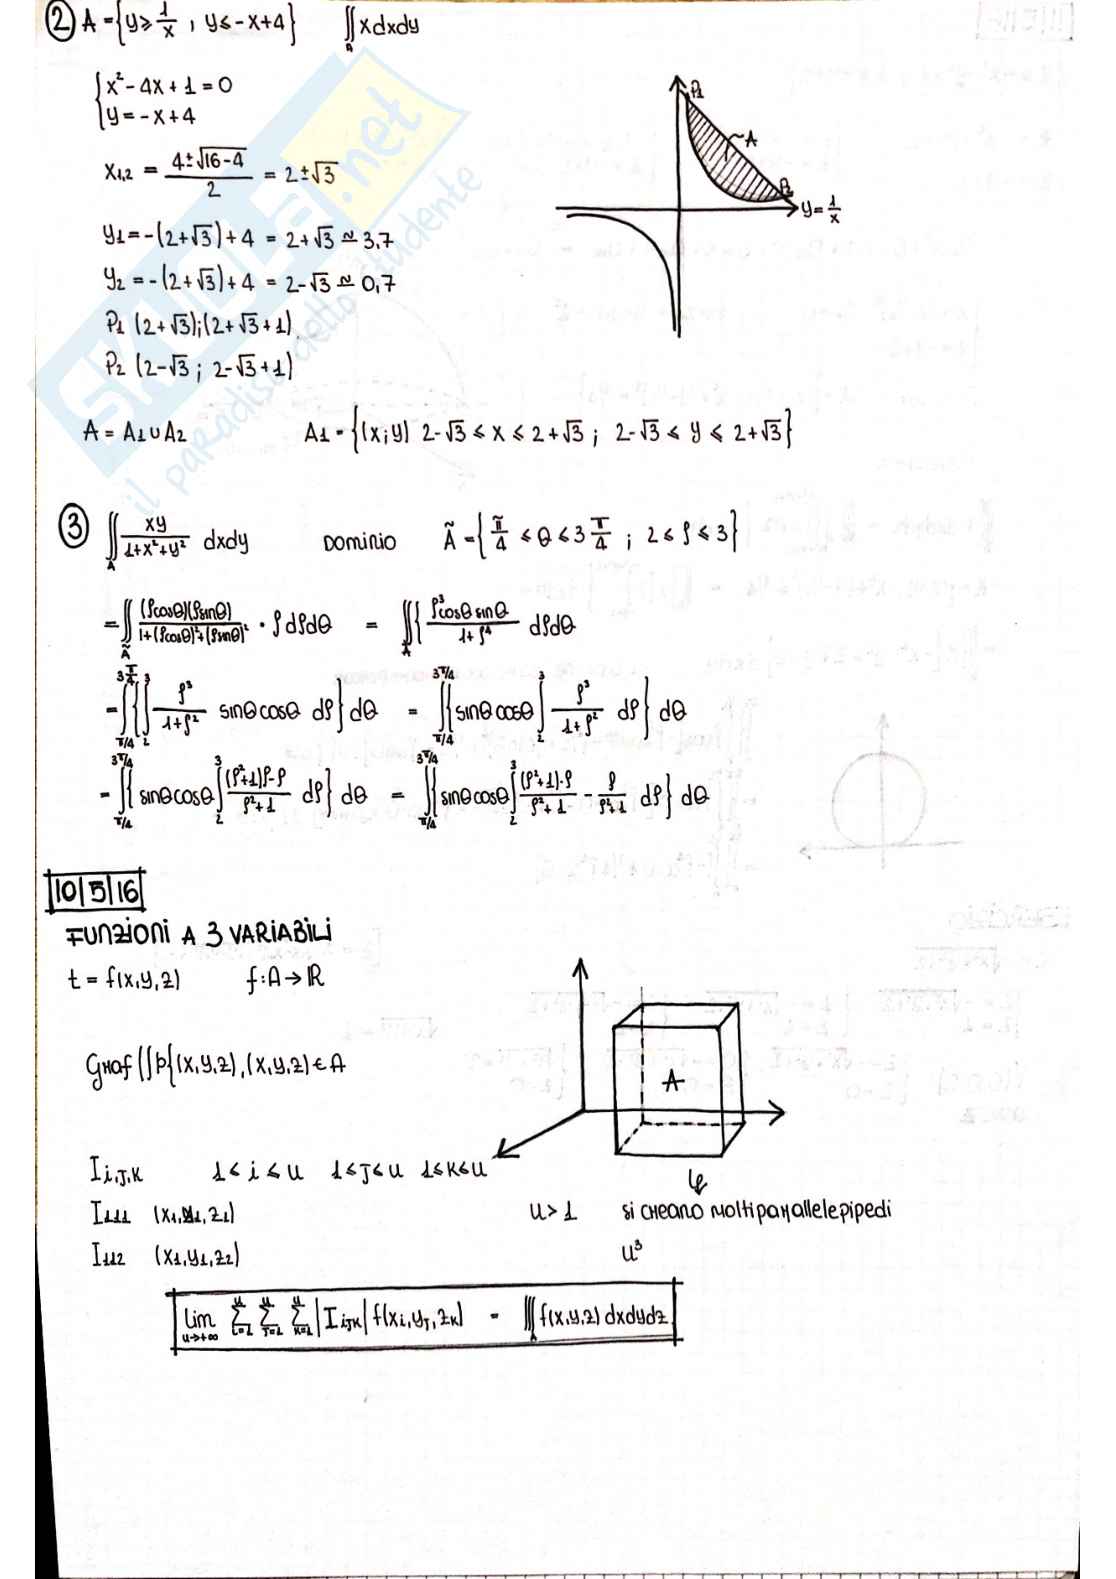 ② A = {y ≥ 1/x , y ≤ -x+4} ∬_A x dxdy
{x² - 4x + 1 = 0
{y = -x + 4
x1,2 = (4 ± √16-4)/2 = 2 ± √3
y1 = -(2+√3) + 4 = 2+√3 ≃ 3,7
y2 = -(2+√3) + 4 = 2-√3 ≃ 0,7
P1 (2+√3);(2+√3+1)
P2 (2-√3 ; 2-√3+1)
P1
A
P2
y = 1/x
A = A1 ∪ A2 A1 = {(x;y) 2-√3 ≤ x ≤ 2+√3 ; 2-√3 ≤ y ≤ 2+√3}
③ ∬_A xy/(1+x²+y²) dxdy DOMINIO Ã = {π/4 ≤ θ ≤ 3π/4 ; 2 ≤ ρ ≤ 3}
= ∬_Ã (ρcosθ)(ρsinθ)/(1+(ρcosθ)²+(ρsinθ)²) · ρ dρdθ = ∬_A { ρ³cosθ sinθ/(1+ρ⁴) dρdθ
= ∫_{π/4}^{3π/4} {∫_2^3 ρ³/(1+ρ²) sinθ cosθ dρ} dθ = ∫_{π/4}^{3π/4} {sinθ cosθ ∫_2^3 ρ³/(1+ρ²) dρ} dθ
= ∫_{π/4}^{3π/4} {sinθ cosθ ∫_2^3 ((ρ²+1)ρ-ρ)/(ρ²+1) dρ} dθ = ∫_{π/4}^{3π/4} {sinθ cosθ ∫_2^3 (ρ²+1)·ρ/(ρ²+1) - ρ/(ρ²+1) dρ} dθ
10/5/16
FUNZIONI A 3 VARIABILI
t = f(x,y,z) f: A → ℝ
A
(x,y,z),(x,y,z) ∈ A
I i,J,K 1 ≤ i ≤ u 1 ≤ J ≤ u 1 ≤ K ≤ u
I111 (x1,y1,z1) u > 1 si creano molti parallelepipedi
I112 (x1,y1,z2) u³
Lim_{u→+∞} Σ_{i=1}^{u} Σ_{J=1}^{u} Σ_{K=1}^{u} |I iJK| f(xi,yJ,zK) = ∭_A f(x,y,z) dxdydz
SKUOLA.net
il paradiso dello studente